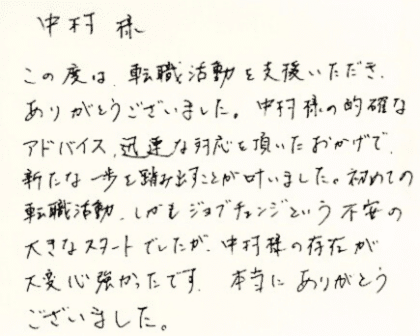 中村 様
この度は、転職活動を支援いただき、
ありがとうございました。中村様の的確な
アドバイス、迅速な対応を頂いたおかげで、
新たな一歩を踏み出すことが叶いました。初めての
転職活動、しかもジョブチェンジという不安の
大きなスタートでしたが、中村様の存在が
大変心強かったです。本当にありがとう
ございました。